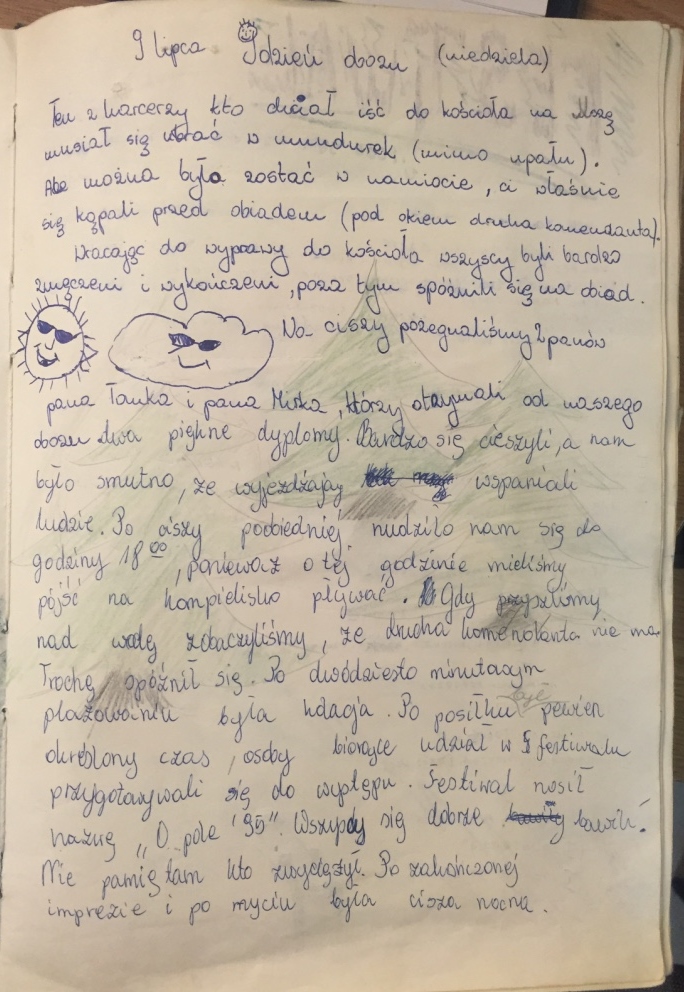 9 lipca 9 dzień obozu (niedziela)
Ten z harcerzy kto chciał iść do kościoła na Mszę
musiał się ubrać w mundurek (mimo upału).
Ale można było zostać w namiocie, ci właśnie
się kąpali przed obiadem (pod okiem druha komendanta).
Wracając do wyprawy do kościoła wszyscy byli bardzo
zmęczeni i wykończeni, poza tym spóźnili się na obiad.
Na ciszy pożegnaliśmy 2 panów
pana Tomka i pana Mirka, którzy otrzymali od naszego
obozu dwa piękne dyplomy. Bardzo się cieszyli, a nam
było smutno, że wyjeżdżają wspaniali
ludzie. Po ciszy poobiedniej nudziło nam się do
godziny 18 00, ponieważ o tej godzinie mieliśmy
pójść na kompielisko pływać. Gdy przyszliśmy
nad wodę zobaczyliśmy, że druha komendanta nie ma.
Trochę opóźnił się. Po dwódziesto minutowym
plażowaniu była kolacja. Po posiłku pewien
określony czas, osoby biorące udział w festiwalu
przygotowywali się do występu. Festiwal nosił
nazwę „O pole '95". Wszyscy się dobrze bawili.
Nie pamiętam kto zwyciężył. Po zakończonej
imprezie i po myciu była cisza nocna.